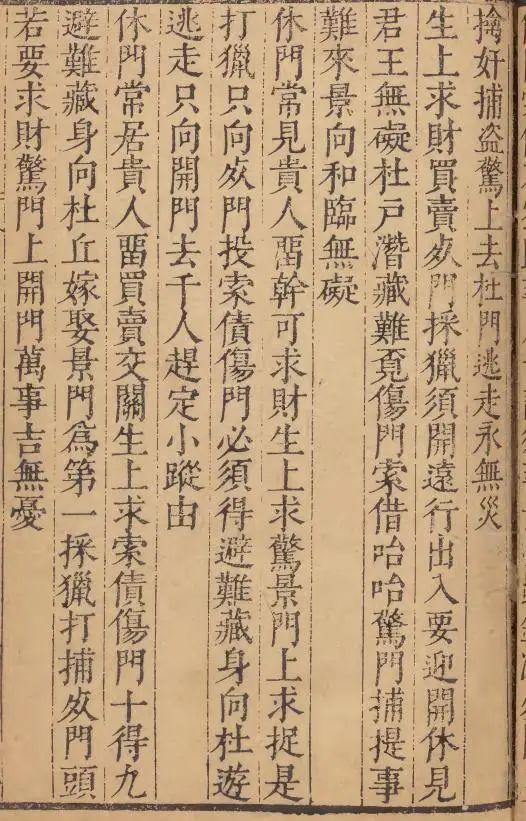 擒奸捕盗驚上去杜門逃走永無災
生上求財買賣死門採獵須開遠行出入要迎開休見
君王無礙杜戶潛藏難覔傷門索借咍咍驚門捕捉事
難來景向和臨無礙
休門常見貴人畱幹可求財生上求驚景門上求捉是
打獵只向死門投索債傷門必須得避難藏身向杜遊
逃走只向開門去千人趕定小蹤由
休門常居貴人畱買賣交關生上求索債傷門十得九
避難藏身向杜丘嫁娶景門為第一採獵打捕死門頭
若要求財驚門上開門萬事吉無憂